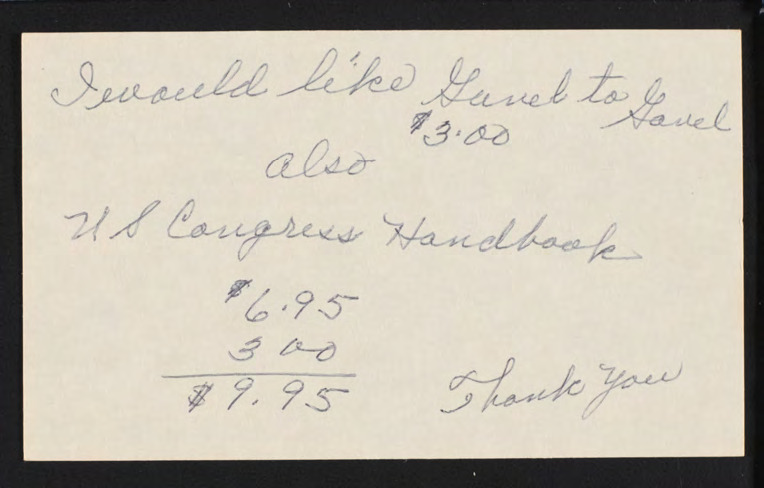 I would like Gavel to Gavel
$3.00
also
US Congress Handbook
$6.95
3 00
$9.95
Thank You